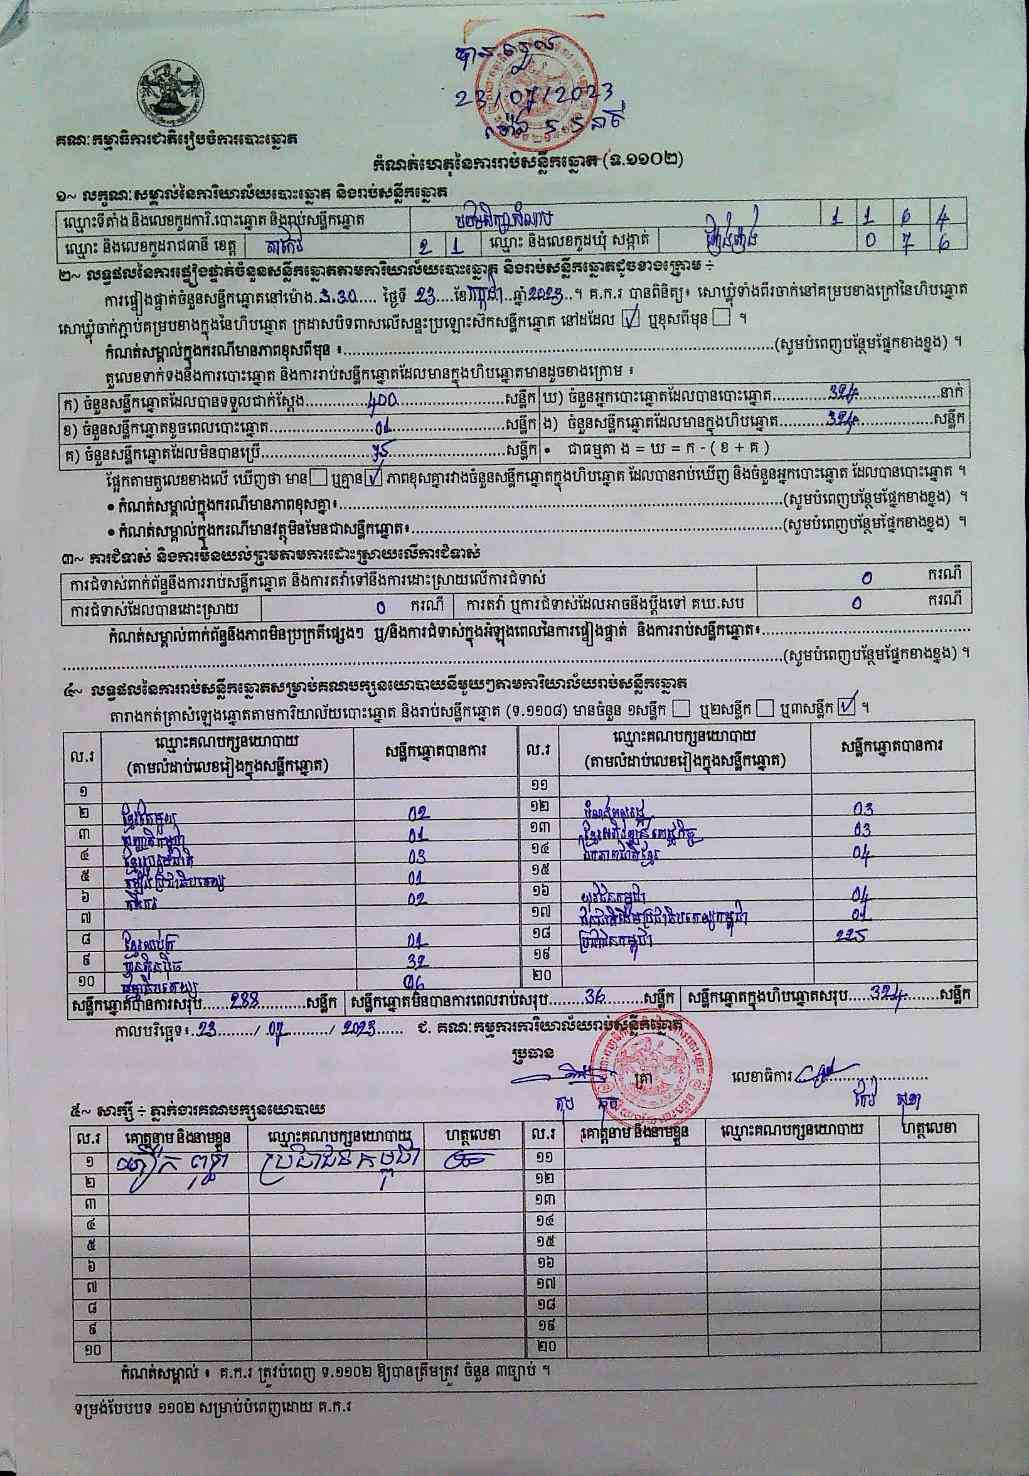 បានទទួល
23/07/2023
គណៈកម្មាធិការជាតិរៀបចំការបោះឆ្នោត
កំណត់ហេតុនៃការរាប់សន្លឹកឆ្នោត (ទ.១១០២)
១~ លក្ខណៈសម្គាល់នៃការិយាល័យបោះឆ្នោត និងរាប់សន្លឹកឆ្នោត
ឈ្មោះទីតាំង និងលេខកូដការិ.បោះឆ្នោត និងរាប់សន្លឹកឆ្នោត 1 1 6 4
ឈ្មោះ និងលេខកូដរាជធានី ខេត្ត តាកែវ 2 1 ឈ្មោះ និងលេខកូដឃុំ សង្កាត់ 0 7 6
២~ លទ្ធផលនៃការផ្ទៀងផ្ទាត់ចំនួនសន្លឹកឆ្នោតតាមការិយាល័យបោះឆ្នោត និងរាប់សន្លឹកឆ្នោតដូចខាងក្រោម ÷
ការផ្ទៀងផ្ទាត់ចំនួនសន្លឹកឆ្នោតនៅម៉ោង 3:30 ថ្ងៃទី 23 ខែ កក្កដា ឆ្នាំ 2023 ។ គ.ក.រ បានពិនិត្យ៖ សោឃ្លុំទាំងពីរចាក់នៅគម្របខាងក្រៅនៃហិបឆ្នោត
សោឃ្លុំចាក់ភ្ជាប់គម្របខាងក្នុងនៃហិបឆ្នោត ក្រដាសបិទពាសលើសន្ទះប្រឡោះស៊កសន្លឹកឆ្នោត នៅដដែល ✓ ឬខុសពីមុន ។
កំណត់សម្គាល់ក្នុងករណីមានភាពខុសពីមុន ៖ (សូមបំពេញបន្ថែមផ្នែកខាងខ្នង) ។
តួលេខទាក់ទងនឹងការបោះឆ្នោត និងការរាប់សន្លឹកឆ្នោតដែលមានក្នុងហិបឆ្នោតមានដូចខាងក្រោម ៖
ក) ចំនួនសន្លឹកឆ្នោតដែលបានទទួលជាក់ស្តែង 400 សន្លឹក ឃ) ចំនួនអ្នកបោះឆ្នោតដែលបានបោះឆ្នោត 324 នាក់
ខ) ចំនួនសន្លឹកឆ្នោតខូចពេលបោះឆ្នោត 01 សន្លឹក ង) ចំនួនសន្លឹកឆ្នោតដែលមានក្នុងហិបឆ្នោត 324 សន្លឹក
គ) ចំនួនសន្លឹកឆ្នោតដែលមិនបានប្រើ 75 សន្លឹក • ជាធម្មតា ង = ឃ = ក - ( ខ + គ )
ផ្អែកតាមតួលេខខាងលើ ឃើញថា មាន ឬគ្មាន ✓ ភាពខុសគ្នារវាងចំនួនសន្លឹកឆ្នោតក្នុងហិបឆ្នោត ដែលបានរាប់ឃើញ និងចំនួនអ្នកបោះឆ្នោត ដែលបានបោះឆ្នោត ។
• កំណត់សម្គាល់ក្នុងករណីមានភាពខុសគ្នា៖ (សូមបំពេញបន្ថែមផ្នែកខាងខ្នង) ។
• កំណត់សម្គាល់ក្នុងករណីមានវត្ថុមិនមែនជាសន្លឹកឆ្នោត៖ (សូមបំពេញបន្ថែមផ្នែកខាងខ្នង) ។
៣~ ការជំទាស់ និងការមិនយល់ព្រមតាមការដោះស្រាយលើការជំទាស់
ការជំទាស់ពាក់ព័ន្ធនឹងការរាប់សន្លឹកឆ្នោត និងការតវ៉ាទៅនឹងការដោះស្រាយលើការជំទាស់ 0 ករណី
ការជំទាស់ដែលបានដោះស្រាយ 0 ករណី ការតវ៉ា ឬការជំទាស់ដែលអាចនឹងប្តឹងទៅ គឃ.សប 0 ករណី
កំណត់សម្គាល់ពាក់ព័ន្ធនឹងភាពមិនប្រក្រតីផ្សេងៗ ឬ/និងការជំទាស់ក្នុងអំឡុងពេលនៃការផ្ទៀងផ្ទាត់ និងការរាប់សន្លឹកឆ្នោត៖
(សូមបំពេញបន្ថែមផ្នែកខាងខ្នង) ។
៤~ លទ្ធផលនៃការរាប់សន្លឹកឆ្នោតសម្រាប់គណបក្សនយោបាយនីមួយៗតាមការិយាល័យរាប់សន្លឹកឆ្នោត
តារាងកត់ត្រាសំឡេងឆ្នោតតាមការិយាល័យបោះឆ្នោត និងរាប់សន្លឹកឆ្នោត (ទ.១១០៨) មានចំនួន ១សន្លឹក ឬ២សន្លឹក ឬ៣សន្លឹក ✓ ។
ល.រ ឈ្មោះគណបក្សនយោបាយ (តាមលំដាប់លេខរៀងក្នុងសន្លឹកឆ្នោត) សន្លឹកឆ្នោតបានការ ល.រ ឈ្មោះគណបក្សនយោបាយ (តាមលំដាប់លេខរៀងក្នុងសន្លឹកឆ្នោត) សន្លឹកឆ្នោតបានការ
១ ១១
២ ខ្មែរតែមួយ 02 ១២ 03
៣ 01 ១៣ ខ្មែរអភិវឌ្ឍន៍សេដ្ឋកិច្ច 03
៤ ខ្មែររួបរួមជាតិ 03 ១៤ ឯកភាពជាតិខ្មែរ 04
៥ កម្លាំងប្រជាធិបតេយ្យ 01 ១៥
៦ កសិករ 02 ១៦ យុវជនកម្ពុជា 04
៧ ១៧ ជនជាតិដើមប្រជាធិបតេយ្យកម្ពុជា 01
៨ ខ្មែរឈប់ក្រ 01 ១៨ ប្រជាជនកម្ពុជា 225
៩ ហ៊្វុនស៊ិនប៉ិច 32 ១៩
១០ 06 ២០
សន្លឹកឆ្នោតបានការសរុប 288 សន្លឹក សន្លឹកឆ្នោតមិនបានការពេលរាប់សរុប 36 សន្លឹក សន្លឹកឆ្នោតក្នុងហិបឆ្នោតសរុប 324 សន្លឹក
កាលបរិច្ឆេទ៖ 23 / 07 / 2023 ជ. គណៈកម្មការការិយាល័យរាប់សន្លឹកឆ្នោត
ប្រធាន
ត្រា លេខាធិការ
៥~ សាក្សី ÷ ភ្នាក់ងារគណបក្សនយោបាយ
ល.រ គោត្តនាម និងនាមខ្លួន ឈ្មោះគណបក្សនយោបាយ ហត្ថលេខា ល.រ គោត្តនាម និងនាមខ្លួន ឈ្មោះគណបក្សនយោបាយ ហត្ថលេខា
១ ប្រជាជនកម្ពុជា ១១
២ ១២
៣ ១៣
៤ ១៤
៥ ១៥
៦ ១៦
៧ ១៧
៨ ១៨
៩ ១៩
១០ ២០
កំណត់សម្គាល់ ៖ គ.ក.រ ត្រូវបំពេញ ទ.១១០២ ឱ្យបានត្រឹមត្រូវ ចំនួន ៣ច្បាប់ ។
ទម្រង់បែបបទ ១១០២ សម្រាប់បំពេញដោយ គ.ក.រ